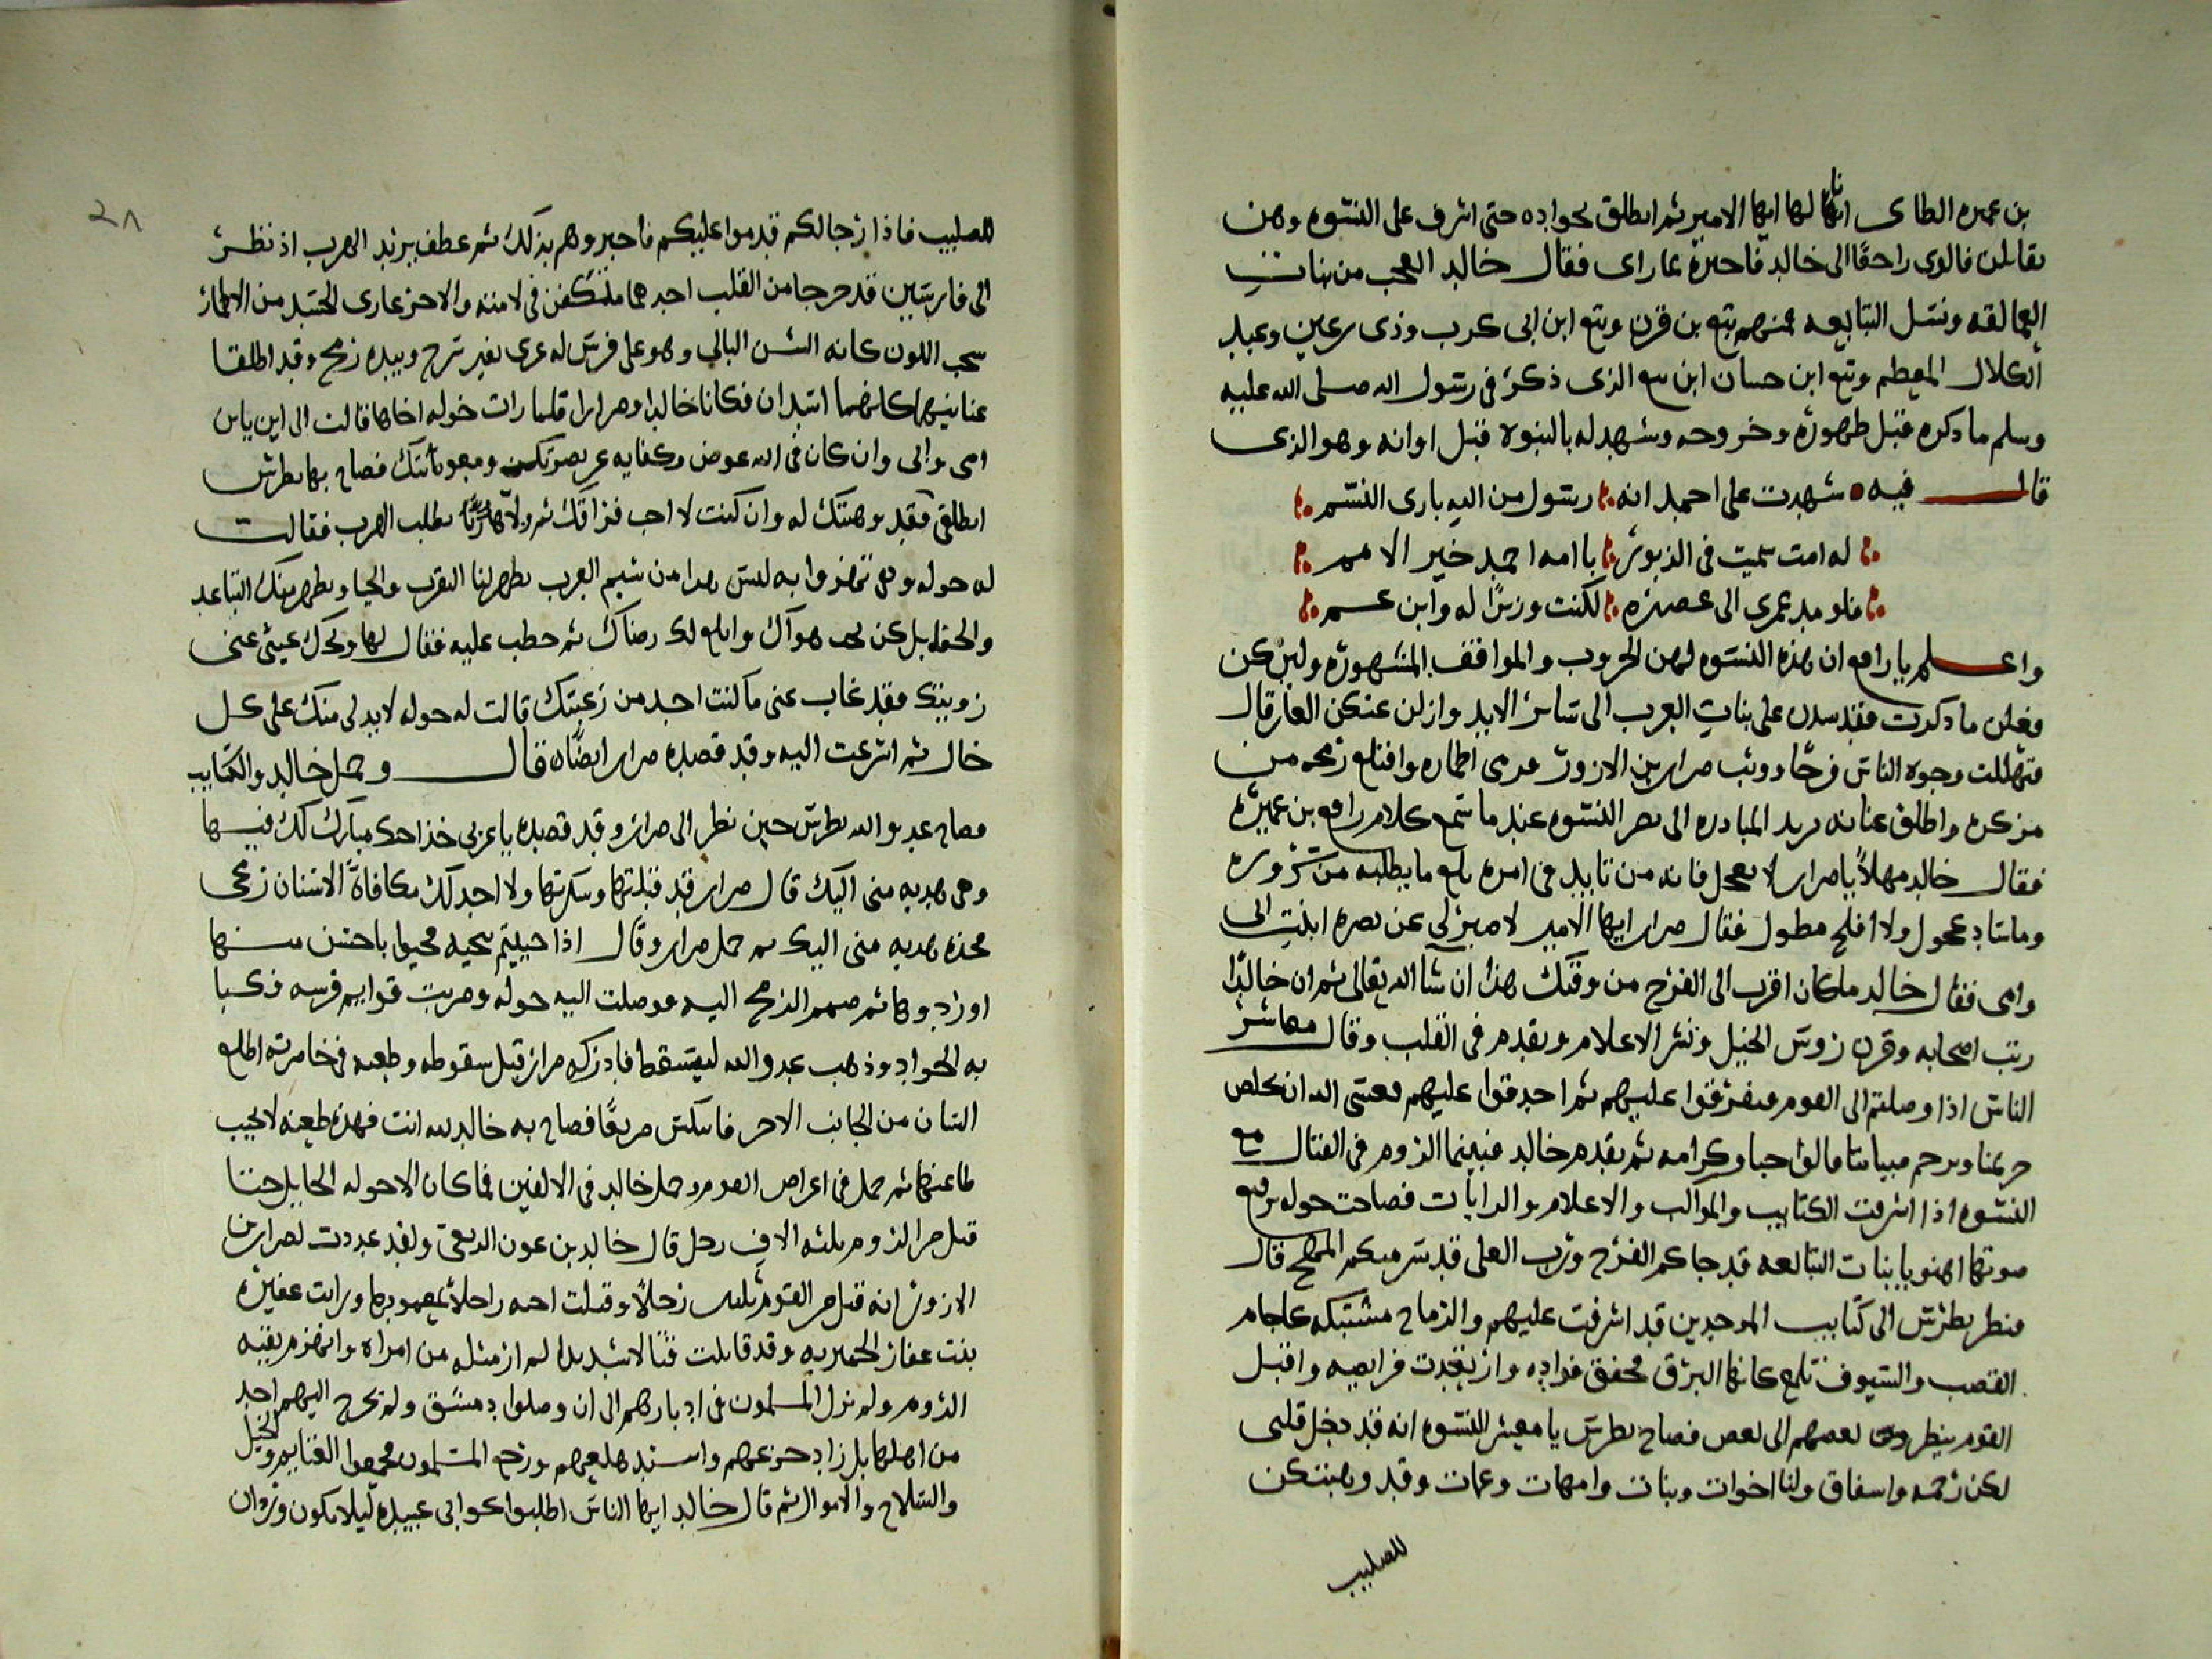 بن عميره الطاى انا لها ايها الامير ثم انطلق بجواده حتى اشرف على النسوه وهن
يقاتلن فالوى راجعًا الى خالد فاخبره بما راى فقال خالد العجب من بنات
العمالقه ونسل التبابعه منهم تبع بن قرن وتبع ابن ابى كرب وذى رعين وعبد
الكلال المعظم وتبع ابن حسان ابن تبع الذى ذكر فى رسول الله صلى الله عليه
وسلم ما ذكره قبل ظهوره وخروجه وشهد له بالنبوه قبل اوانه وهو الذى
قال فيه شهدت على احمد انه رسول من الله بارى النسم
له امت سميت فى الزبور بامه احمد خير الامم
فلو مد عمرى الى عصره لكنت وزيرًا له وابن عم
واعلم يا رافع ان هذه النسوه لهن الحروب والمواقف المشهوره ولئن كن
فعلن ما ذكرت فقد سدن على بنات العرب الى سائر الابد وازلن عنكن العار قال
فتهللت وجوه الناس فرحًا ووثب ضرار بن الازور ورمى اطماره واقتلع رمحه من
مركزه واطلق عنانه يريد المبادره الى نصر النسوه عندما سمع كلام رافع بن عميره
فقال خالد مهلًا يا ضرار لا تعجل فانه من تايد فى امره بلغ ما يطلبه من سروره
وما ساد عجول ولا افلح مطول فقال ضرار ايها الامير لا صبر لى عن نصره ابنت ابى
وامى فقال خالد ما كان اقرب الى الفرج من وقتك هذا ان شا الله تعالى ثم ان خالدًا
رتب اصحابه وقرن روس الخيل ونشر الاعلام وتقدم فى القلب وقال معاشر
الناس اذا وصلتم الى القوم فتفرقوا عليهم ثم احدقوا عليهم فعسى الله ان يخلص
حريمنا ويرحم صبياننا فقالوا حبا وكرامه ثم تقدم خالد فبينما الروم فى القتال مع
النسوه اذا اشرفت الكتايب والمواكب والاعلام والرايات فصاحت خوله برفع
صوتها اهنو يا بنات التبابعه قد جاكم الفرج ورب العلى قال
فنظر بطرس الى كتايب الموحدين قد اشرفت عليهم والرماح مشتبكه كاجام
القصب والسيوف تلمع كانها البرق فخفق فواده وارتعدت فرايصه واقبل
القوم ينظرون بعضهم الى بعض فصاح بطرس يا معشر النسوه انه قد دخل قلبى
لكن رحمه واشفاق ولنا اخوات وبنات وامهات وعمات وقد وهبتكن
للصليب
٢٨
للصليب فاذا رجالكم قدموا عليكم فاخبروهم بذلك ثم عطف يريد الهرب اذ نظر
الى فارسين قد خرجا من القلب احدهما متكفن فى لامته والاخر عارى الجسد من الاطمار
شحب اللون كانه الشن البالى وهو على فرس له عرى بغير سرج وبيده رمح وقد اطلقا
عنانيهما كانهما اسدان فكانا خالدا وضرارا فلما رات خوله اخاها قالت الى اين يابن
امى وابى وان كان فى الله عوض وكفايه عن نصرتك ومعونتك فصاح بها بطرس
انطلقى فقد وهبتك له وان كنت لا احب فراقك ثم ولا هاربًا يطلب الهرب فقالت
له خوله وهى تهزوا به ليس هذا من شيم العرب تظهر لنا القرب والحيا وتظهر منك التباعد
والجفا بل كن هواك وابلغ لك رضاك ثم خطت عليه فقال لها وحك عينى عنى
زوينك فقد غاب عنى ما كنت اجد من رغبتك قالت له خوله لا بد لى منك على كل
حال ثم اشرعت اليه وقد قصده ضرار ايضًا قال وحمل خالد والكتايب
فصاح عدو الله بطرس حين نظر الى ضرار وقد قصده يا عربى خذ اختك مبارك لك فيها
وهى هديه منى اليك قال ضرار قد قبلتها وشكرتها ولا اجد لك مكافاة الا سنان رمحى
فخذه هديه منى اليك ثم حمل ضرار وقال اذا حييتم بتحيه فحيوا باحسن منها
او ردوها ثم صمم الرمح اليه ووصلت اليه خوله وضربت قوايم فرسه فكبا
به الجواد وذهب عدو الله ليسقط فادركه ضرار قبل سقوطه وطعنه فى خاصرته اطلع
السنان من الجانب الاخر فانكس صريعًا فصاح به خالد لله انت فهذه طعنه لا يخيب
طاعنها ثم حمل فى اعراض القوم وحمل خالد فى الالفين فما كان الا جوله الجايل حتى
قتل من الروم ثلثه الاف رجل قال خالد بن عون الربعى ولقد عددت لضرار بن
الازور انه قتل من القوم ثلثين رجلًا وقتلت اخته راجلًا بعمودها ورايت عفيره
بنت عفار الحميريه وقد قاتلت قتالا شديدا لم ار مثله من امراه وانهزم بقيه
الروم ولم تزل المسلمون فى ادبارهم الى ان وصلوا دمشق ولم يخرج اليهم احد
من اهلها بل زاد جزعهم واشتد هلعهم ورجع المسلمون فجمعوا الغنايم والخيل
والسلاح والاموال ثم قال خالد ايها الناس اطلبوا نحو ابى عبيده ليلا يكون وردان